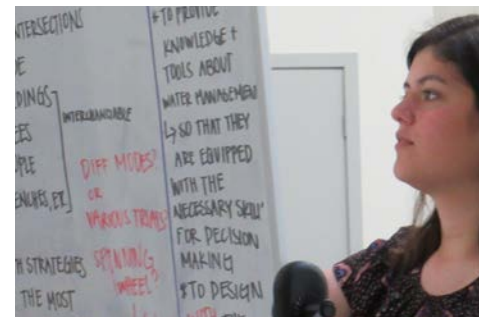 NTERSECTIONS
DINGS
EES
PLE
ENCHES, ET.
INTERCHANGABLE
DIFF MODES?
OR
VARIOUS TRIALS
H STRATEGIES
SPINNING
THE MOST
WHEEL"
*TO PROVIDE
KNOWLEDGE +
TOOLS ABOUT
WATER MANAGEMENT
↳ SO THAT THEY
ARE EQUIPPED
WITH THE
NECESSARY SKILL
FOR DECISION
MAKING
*TO DESIGN